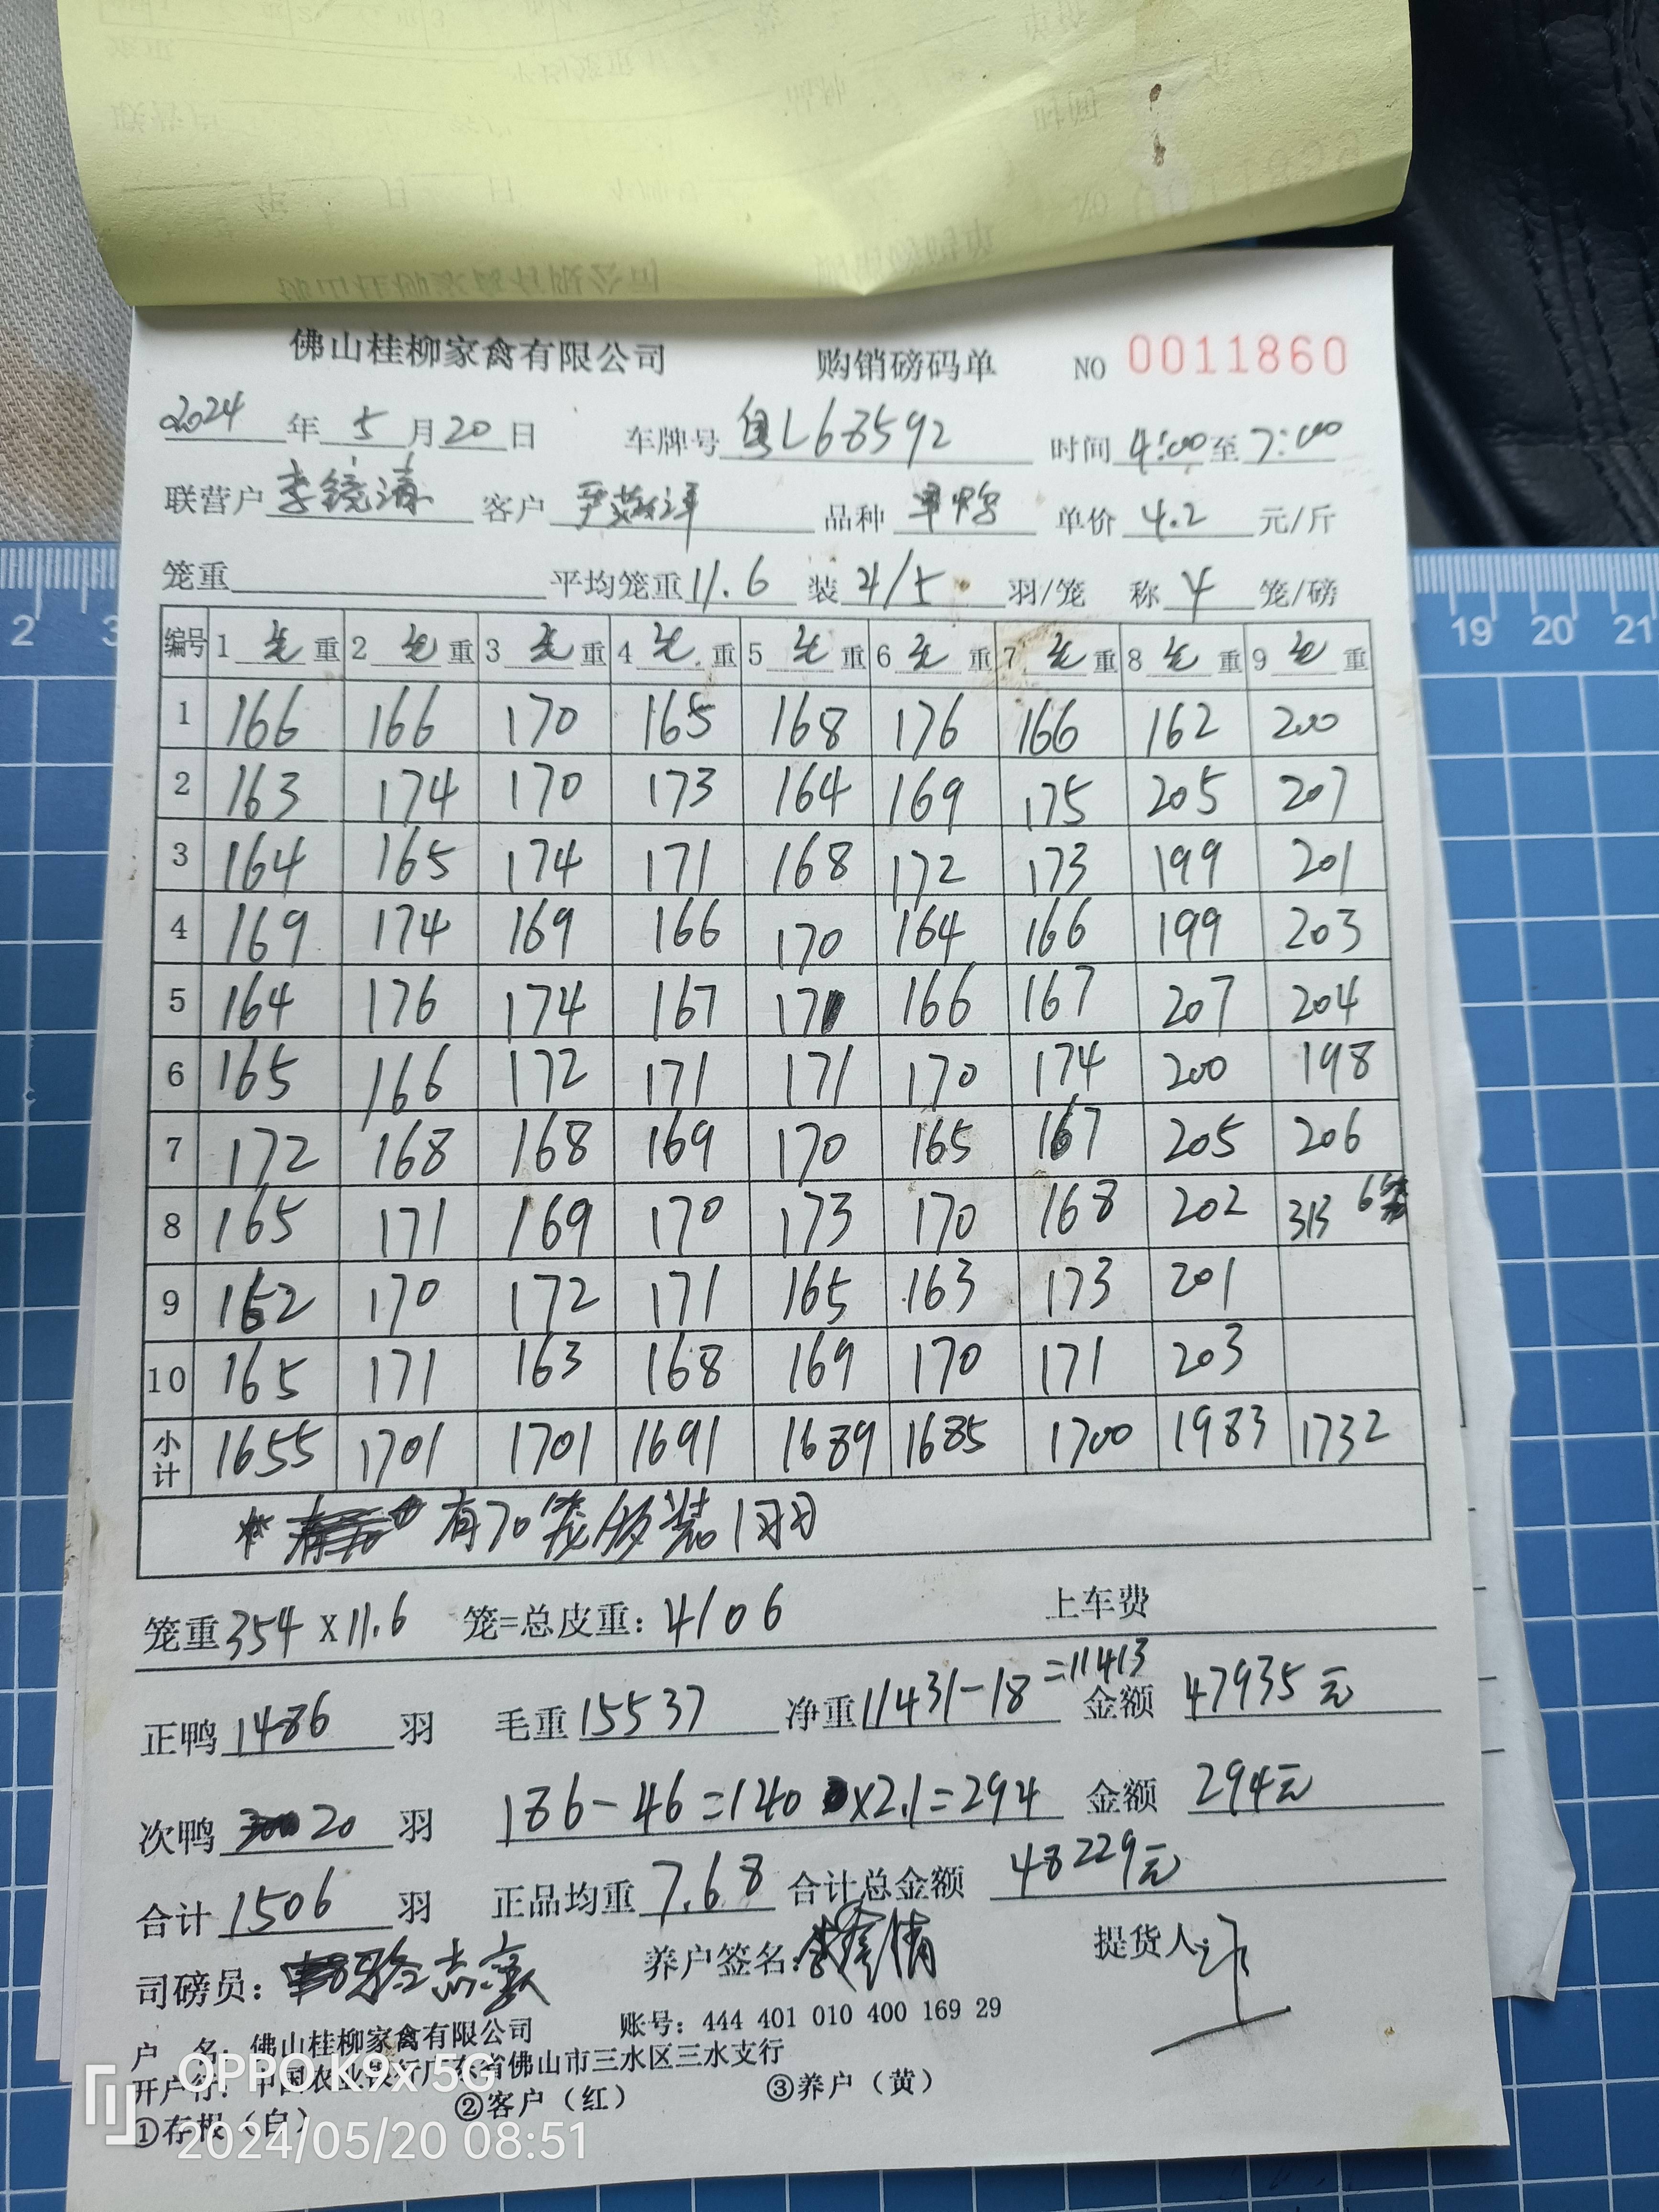 佛山桂柳家禽有限公司 购销磅码单 NO 0011860
2024 年 5 月 20 日 车牌号 粤L68592 时间 4:00 至 7:00
联营户 李镜清 客户 品种 单价 4.2 元/斤
笼重 平均笼重 11.6 装 4/5 羽/笼 称 4 笼/磅
编号 1 毛 重 2 毛 重 3 毛 重 4 毛 重 5 毛 重 6 毛 重 7 毛 重 8 毛 重 9 毛 重
1 166 166 170 165 168 176 166 162 200
2 163 174 170 173 164 169 175 205 207
3 164 165 174 171 168 172 173 199 201
4 169 174 169 166 170 164 166 199 203
5 164 176 174 167 171 166 167 207 204
6 165 166 172 171 171 170 174 200 198
7 172 168 168 169 170 165 167 205 206
8 165 171 169 170 173 170 168 202 313 6笼
9 162 170 172 171 165 163 173 201
10 165 171 163 168 169 170 171 203
小计 1655 1701 1701 1691 1689 1685 1700 1983 1732
有70笼 装 1羽
笼重 354 X 11.6 笼=总皮重: 4106 上车费
正鸭 1486 羽 毛重 15537 净重 11431-18=11413 金额 47935元
次鸭 20 羽 186-46=140 x2.1=294 金额 294元
合计 1506 羽 正品均重 7.68 合计总金额 48229元
司磅员: 养户签名: 提货人:
户 名: 佛山桂柳家禽有限公司 账号: 444 401 010 400 169 29
开户行: 中国农业银行广东省佛山市三水区三水支行
①存根(白) ②客户(红) ③养户(黄)
OPPO K9x 5G
2024/05/20 08:51